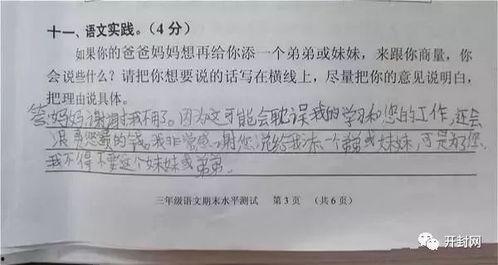 十一、语文实践。(4分)
如果你的爸爸妈妈想再给你添一个弟弟或妹妹，来跟你商量，你
会说些什么？请把你想要说的话写在横线上，尽量把你的意见说明白，
把理由说具体。
答妈妈谢谢我不用了。因为这可能会耽误我的学习和您的工作，还会
浪费您的钱。我非常感谢您说给我添一个弟弟或妹妹，可是为了您，
我不得不要这个妹妹或弟弟.
三年级语文期末水平测试 第3页 (共6页)
开封网